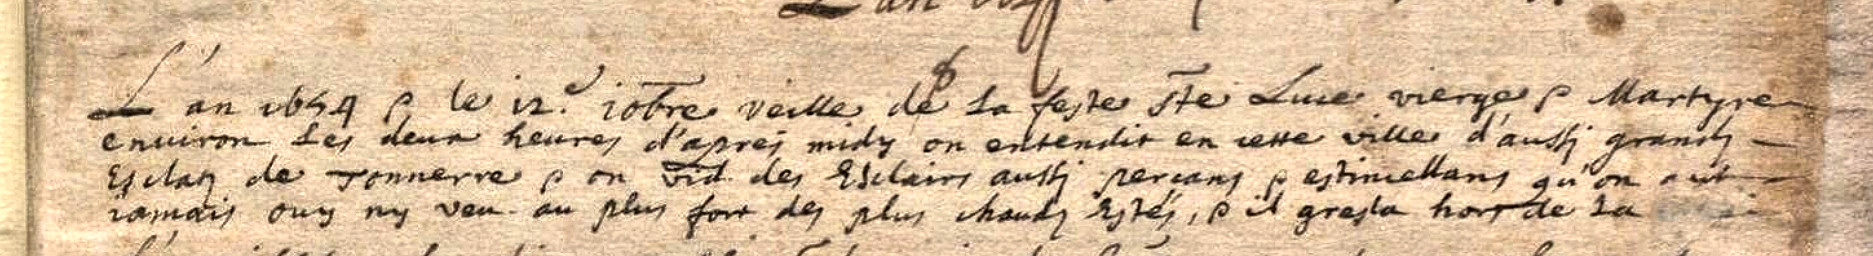 L'an
L'an 1654 & le 12.e 10bre veille de la feste Ste Luce vierge & Martyre
enuiron les deux heures d'apres midy on entendit en cette ville d'aussi grands
Esclatz de Tonnerre & on vid des Esclairs aussi perçans & estincellans qu'on aut
iamais ouy ny veu au plus fort des plus chauds Estés, & il gresla hors de la